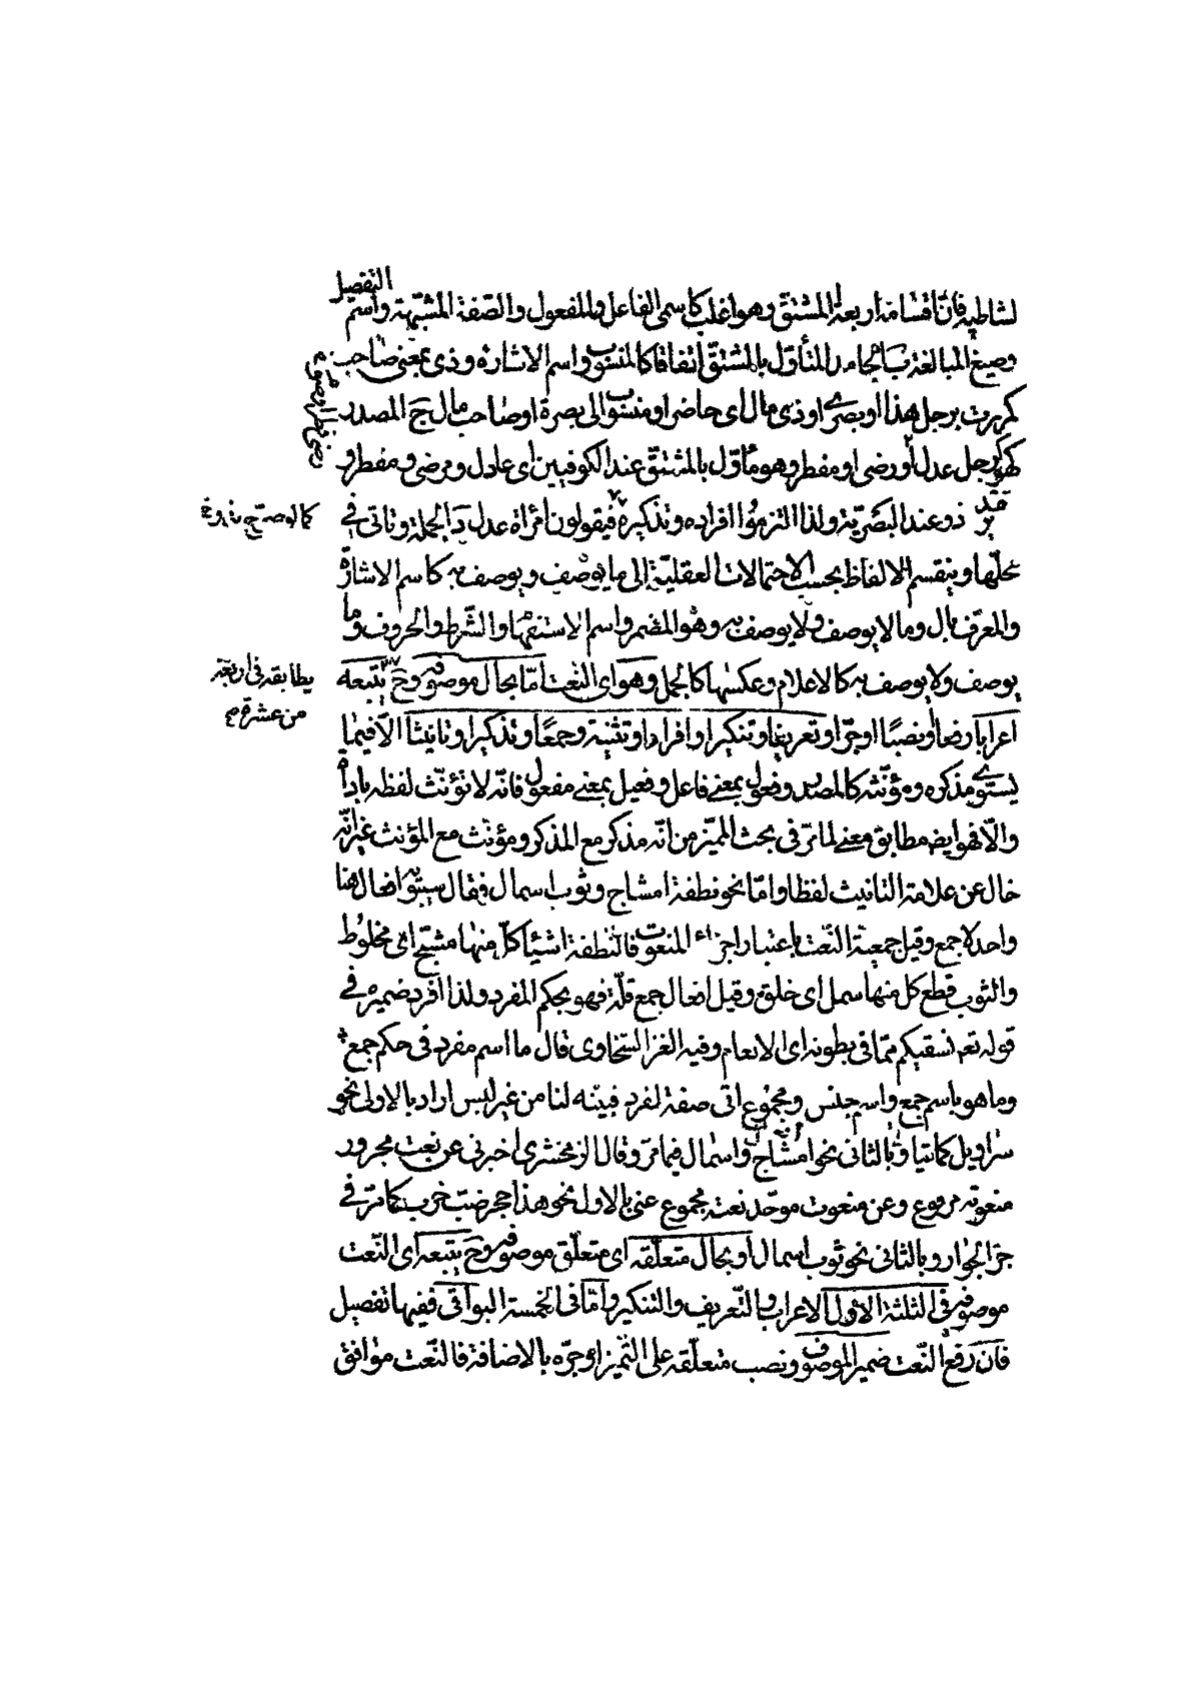 لشاطبية فان اقسامه اربعة ا المشتق وهو اغلب كاسمى الفاعل والمفعول والصفة المشبهة واسم التفضيل
وصيغ المبالغة ب الجامد المتأول بالمشتق اتفاقا كالمنسوب واسم الاشارة وذى بمعنى صاحب
كمررت برجل هذا او بصرى او ذى مال اى حاضر او منسوب الى بصرة او صاحب مال ج المصدر
كرجل عدل او رضى او مفطر وهو مأول بالمشتق عند الكوفيين اى عادل ومرضى ومفطر و
ذو عند البصرية ولذا التزموا افراده وتذكيره فيقولون امرأة عدل د الجملة وتاتى فى
محلها وينقسم الالفاظ بحسب الاحتمالات العقلية الى ما يوصف ويوصف به كاسم الاشارة
والمعرف بال وما لا يوصف ولا يوصف به وهو المضمر واسم الاستفهام والشرط والحروف وما
يوصف ولا يوصف به كالاعلام وعكسها كالجمل وهو اى النعت اما بحال موصوفه وح يتبعه
يطابقه فى اربعة
من عشرة
اعرابا رفعا ونصبا او جرا وتعريفا وتنكيرا وافرادا وتثنية وجمعا وتذكيرا وتانيثا الا فيما
يستوى مذكره ومؤنثه كالمصدر وفعول بمعنى فاعل وفعيل بمعنى مفعول فانه لا تؤنث لفظه باداة
والا فهو ايضا مطابق معنى لما مر فى بحث المميز من انه مذكر مع المذكر ومؤنث مع المؤنث غير انه
خال عن علامة التانيث لفظا واما نحو نطفة امشاج وثوب اسمال فقال سيبويه افعال هنا
واحد لا جمع وقيل جمعية النعت باعتبار اجزاء المنعوت فالنطفة اشياء كل منها مشج اى مخلوط
والثوب قطع كل منها سمل اى خلق وقيل افعال جمع قلة فهو بحكم المفرد ولذا افرد ضميره فى
قوله تعم نسقيكم مما فى بطونه اى الانعام وفيه الغز السخاوى قال ما اسم مفرد فى حكم جمع
وما هو باسم جمع واسم جنس ومجموع اتى صفة لفرد فبينه لنا من غير لبس اراد بالاولى نحو
سراويل كما سياتى وبالثانى نحو امشاج واسمال فيما مر وقال الزمخشرى اخبرنى عن نعت مجرور
منعوته مرفوع وعن منعوت موحد نعته مجموع عنى بالاول نحو هذا جحر ضب خرب كما مر فى
جر الجوار وبالثانى نحو ثوب اسمال او بحال متعلقه اى متعلق موصوفه وح يتبعه اى النعت
موصوفه فى الثلثة الاول الاعراب والتعريف والتنكير واما فى الخمسة البواقى ففيها تفصيل
فان رفع النعت ضمير الموصوف ونصب متعلقه على التميز او جره بالاضافة فالنعت موافق